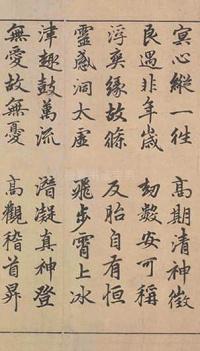 冥心縱一往 高期清神徵
良遇非年歲 劫數安可稱
浮爽緣故條 反胎自有恒
靈感洞太虛 飛步霄上冰
津趣鼓萬流 潛凝真神登
無愛故無憂 高觀稽首昇